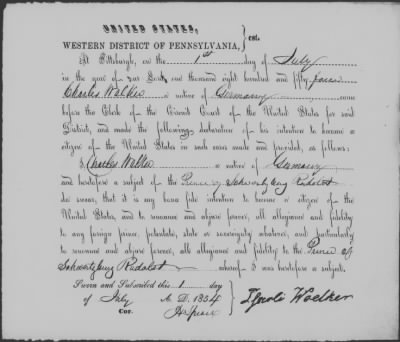 UNITED STATES,
WESTERN DISTRICT OF PENNSYLVANIA, } sct.
At Pittsburgh, on the 1st day of July
in the year of our Lord, one thousand eight hundred and fifty-four
Charles Walker a native of Germany came
before the Clerk of the Circuit Court of the United States for said
District, and made the following declaration of his intention to become a
citizen of the United States in such case made and provided, as follows:
I, Charles Walker a native of Germany
and heretofore a subject of the Prince of Schwartzburg Rudolst
do swear, that it is my bona fide intention to become a citizen of the
United States, and to renounce and abjure forever, all allegiance and fidelity
to any foreign prince, potentate, state or sovereignty whatever, and particularly
to renounce and abjure forever, all allegiance and fidelity to the Prince of
Schwartzburg Rudolst whereof I was heretofore a subject.
Sworn and Subscribed this 1 day
of July A. D. 1854
Cor.
Woelker